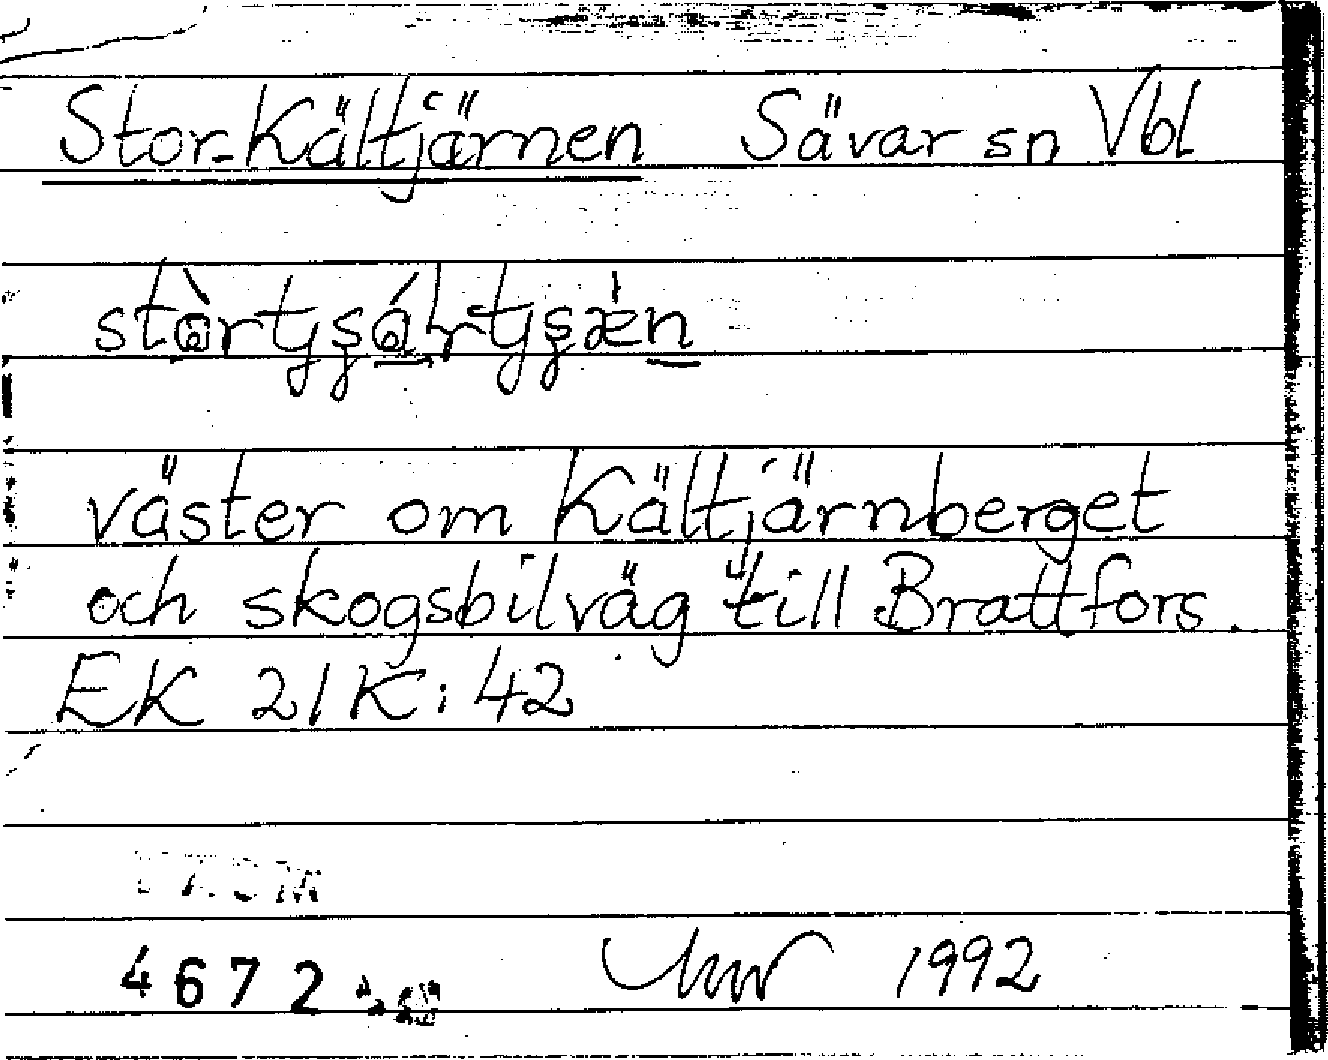 Stor-Kältjärnen Sävar sn Vbl
väster om Kältjärnberget
och skogsbilväg till Brattfors.
EK 21K:42
4672
1992